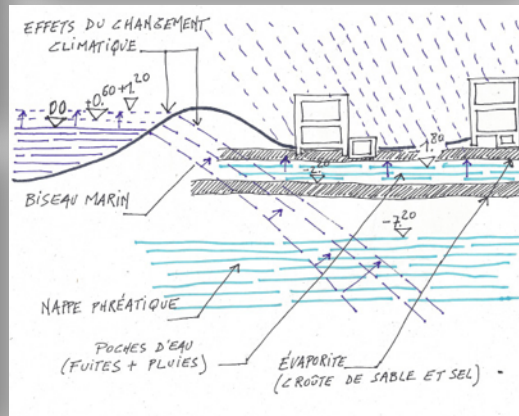 EFFETS DU CHANGEMENT
CLIMATIQUE
00
+0.60
+1.20
-1.80
-2.20
BISEAU MARIN
-7.20
NAPPE PHRÉATIQUE
POCHES D'EAU
(FUITES + PLUIES)
ÉVAPORITE
(CROÛTE DE SABLE ET SEL)